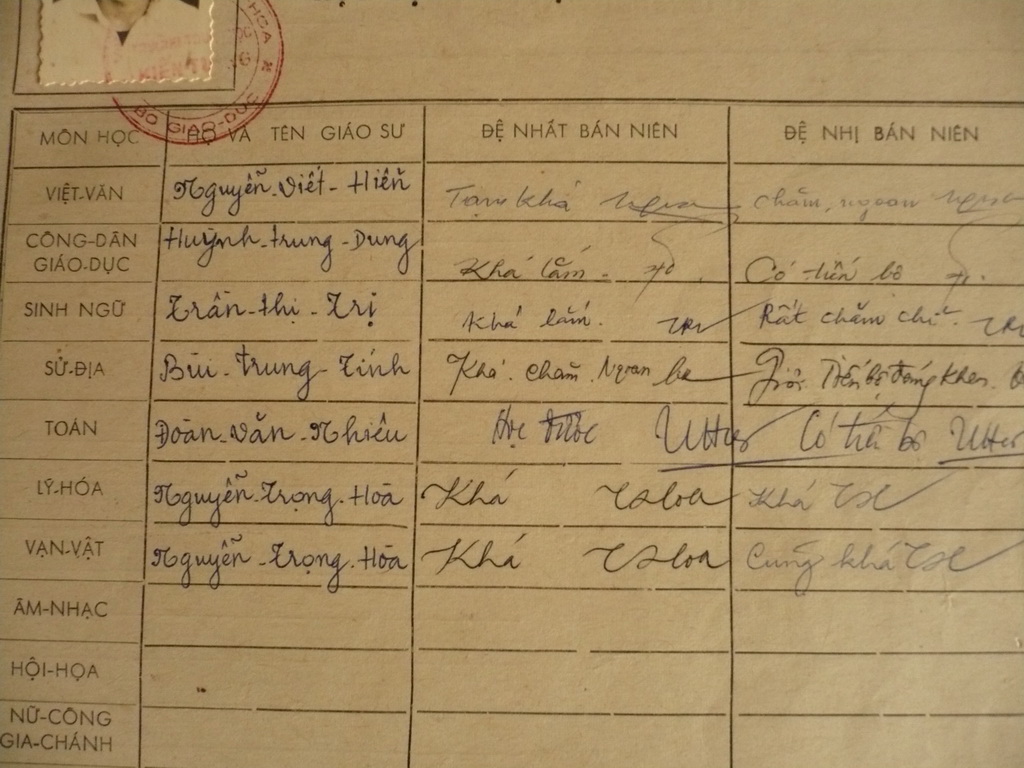 HÒA
KIẾN T
BỘ GIÁO-DỤC
MÔN HỌC HỌ VÀ TÊN GIÁO SƯ ĐỆ NHẤT BÁN NIÊN ĐỆ NHỊ BÁN NIÊN
VIỆT-VĂN Nguyễn-Viết-Hiễn Tạm khá chăm, ngoan
CÔNG-DÂN Huỳnh-trung-Dung
GIÁO-DỤC Khá lắm. Có tiến bộ
SINH NGỮ Trần-thị-Trị Khá lắm. Rất chăm chỉ.
SỬ-ĐỊA Bùi-trung-Tính Khá. chăm. Ngoan Giỏi. Tiến bộ đáng khen.
TOÁN Đoàn-văn-Nhiêu Học được Có tiến bộ
LÝ-HÓA Nguyễn-Trọng-Hòa Khá Khá
VẠN-VẬT Nguyễn-Trọng-Hòa Khá Cũng khá
ÂM-NHẠC
HỘI-HỌA
NỮ-CÔNG
GIA-CHÁNH